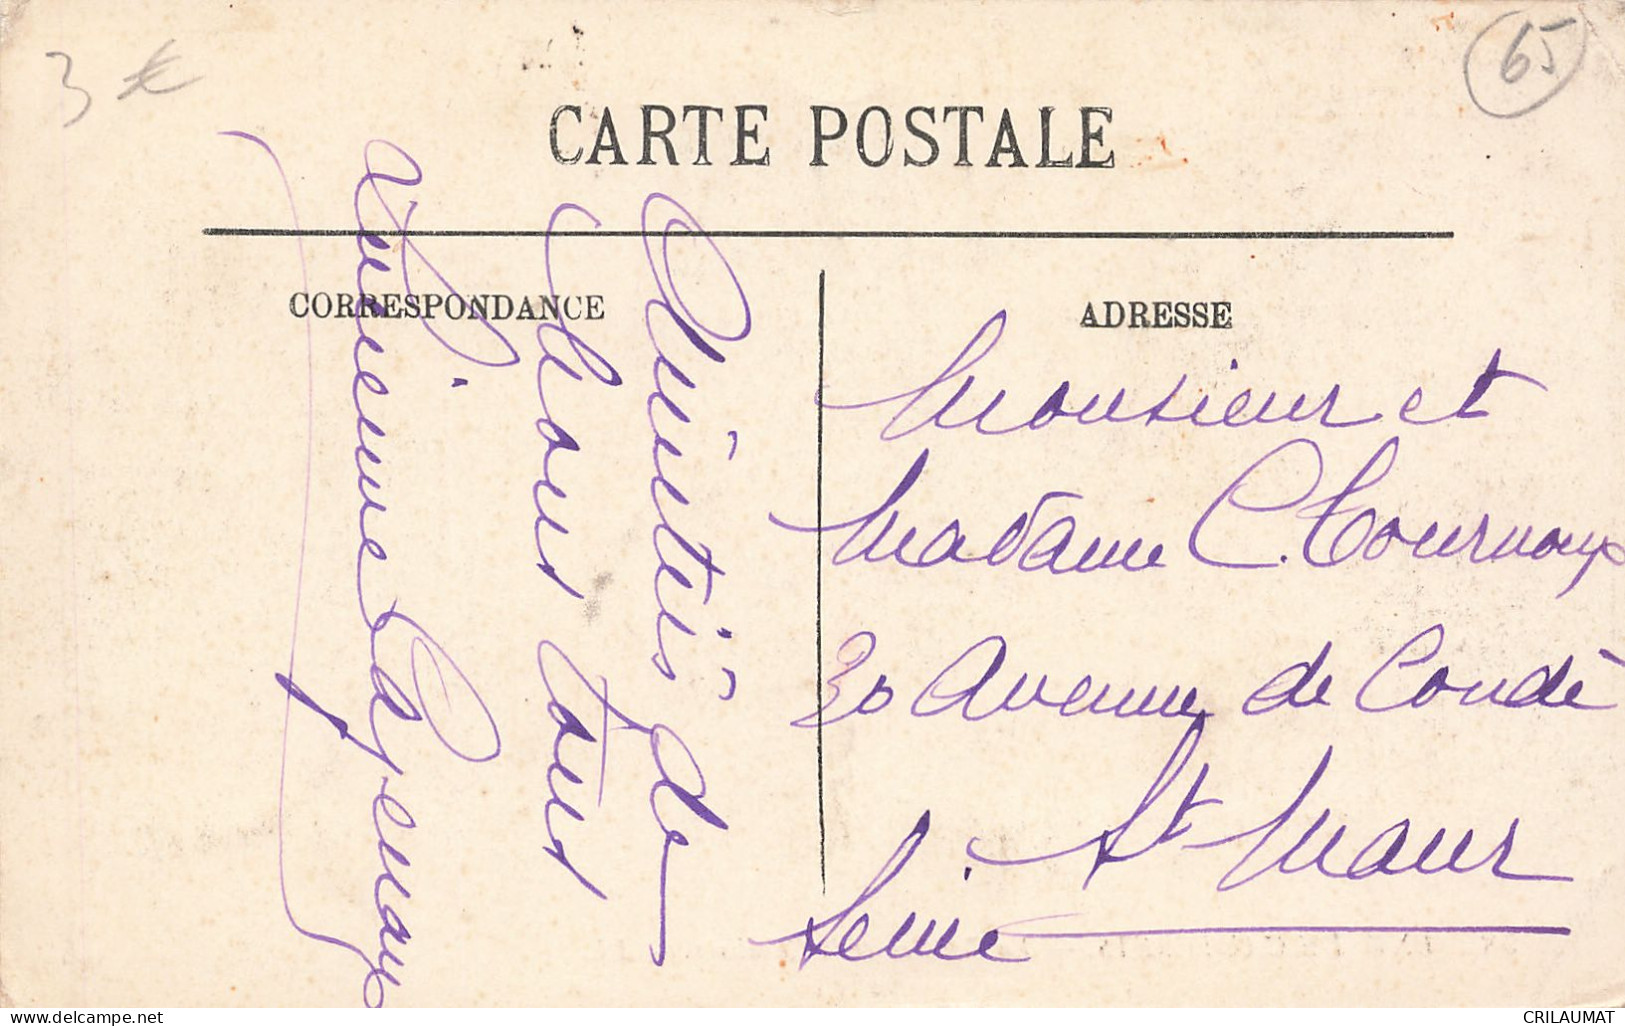 3 €
65
CARTE POSTALE
CORRESPONDANCE
ADRESSE
Amitiés de
nous tous
Vivienne
Monsieur et
Madame C. Tournoux
30 Avenue de Condé
St Maur
Seine
www.delcampe.net
CRILAUMAT